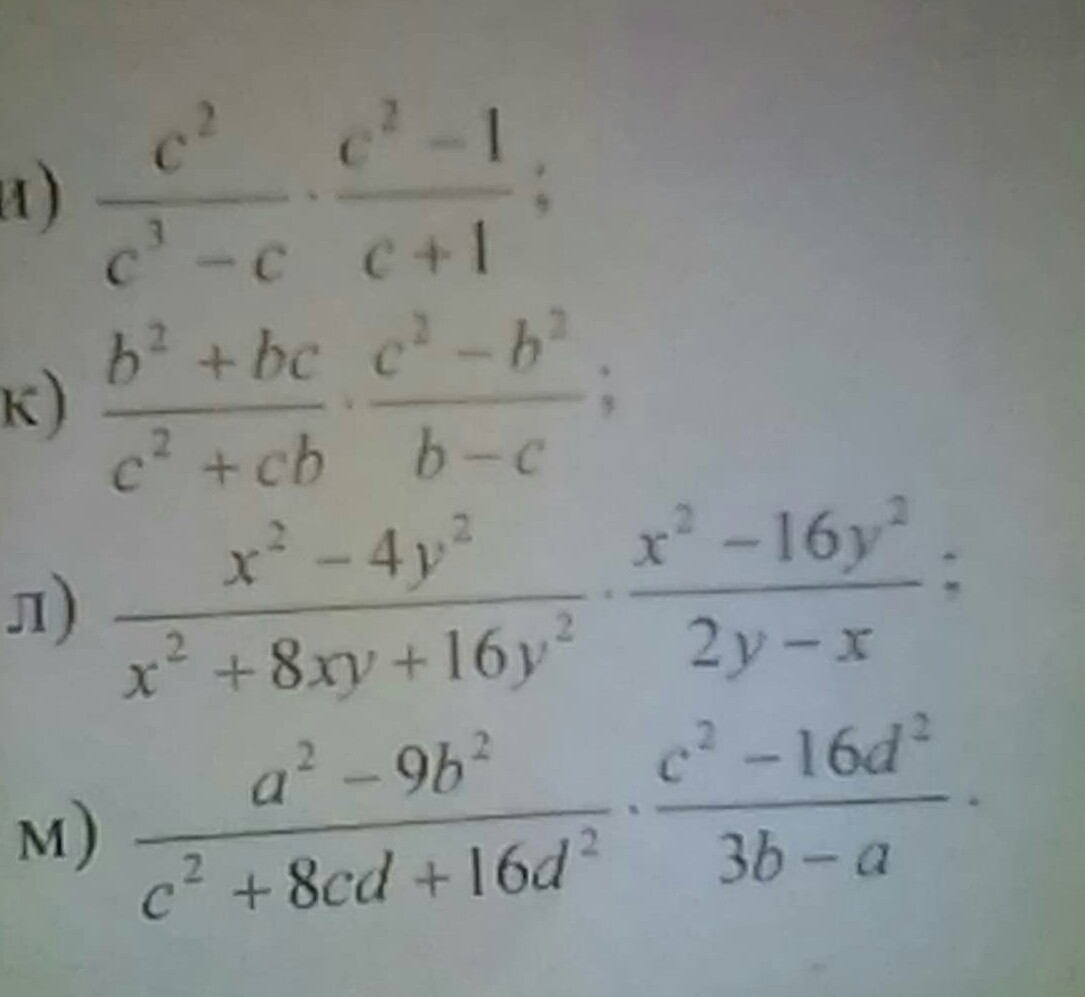 и) \frac{c^2}{c^3 - c} \cdot \frac{c^2 - 1}{c + 1};
к) \frac{b^2 + bc}{c^2 + cb} \cdot \frac{c^2 - b^2}{b - c};
л) \frac{x^2 - 4y^2}{x^2 + 8xy + 16y^2} \cdot \frac{x^2 - 16y^2}{2y - x};
м) \frac{a^2 - 9b^2}{c^2 + 8cd + 16d^2} \cdot \frac{c^2 - 16d^2}{3b - a}.